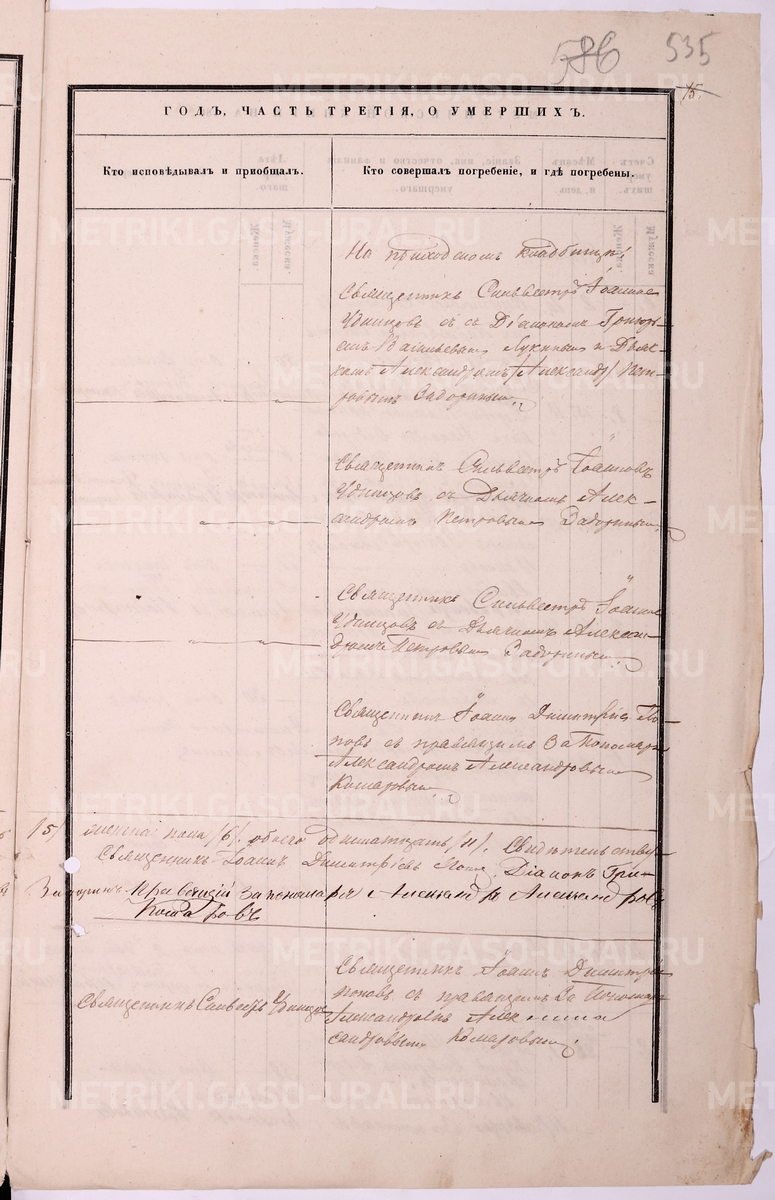 586 535
15.
ГОДЪ, ЧАСТЬ ТРЕТІЯ, О УМЕРШИХЪ.
Кто исповѣдывалъ и пріобщалъ.
Кто совершалъ погребеніе, и гдѣ погребены.
На приходскомъ кладбищѣ;
Священникъ Сильвестръ Іоанновъ
Удинцовъ съ Діакономъ Григорь-
емъ Васильевымъ Лукинымъ и Дьяч-
комъ Александромъ Пет-
ровымъ Задоринымъ.
Священникъ Сильвестръ Іоанновъ
Удинцовъ съ Дьячкомъ Алек-
сандромъ Петровымъ Задоринымъ.
Священникъ Сильвестръ Іоанновъ
Удинцовъ съ Дьячкомъ Алексан-
дромъ Петровымъ Задоринымъ.
Священникъ Іоаннъ Димитріевъ По-
повъ съ правящимъ за Пономаря
Александромъ Александровымъ
Комаровымъ.
/5/ женска пола /6/. обоего одиннатцать /11/. Свидетельству
Священникъ Іоаннъ Димитріевъ Діаконъ Гри-
Задоринъ Правящій за пономаря Александръ Александровъ
Комаровъ
Священникъ Іоаннъ Димитріевъ
Поповъ съ правящимъ за Пономаря
Александромъ Алек
сандровымъ Комаровымъ.
Священникъ Сильвестръ Удинцовъ
METRIKI.GASO-URAL.RU